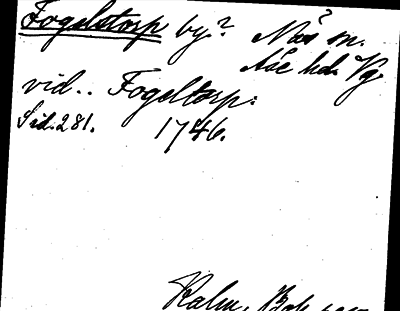 Fogelstorp by? Näs m.
Åse hd. Vg.
vid.. Fogeltorp:
Sid. 281. 1746.
Kalm,